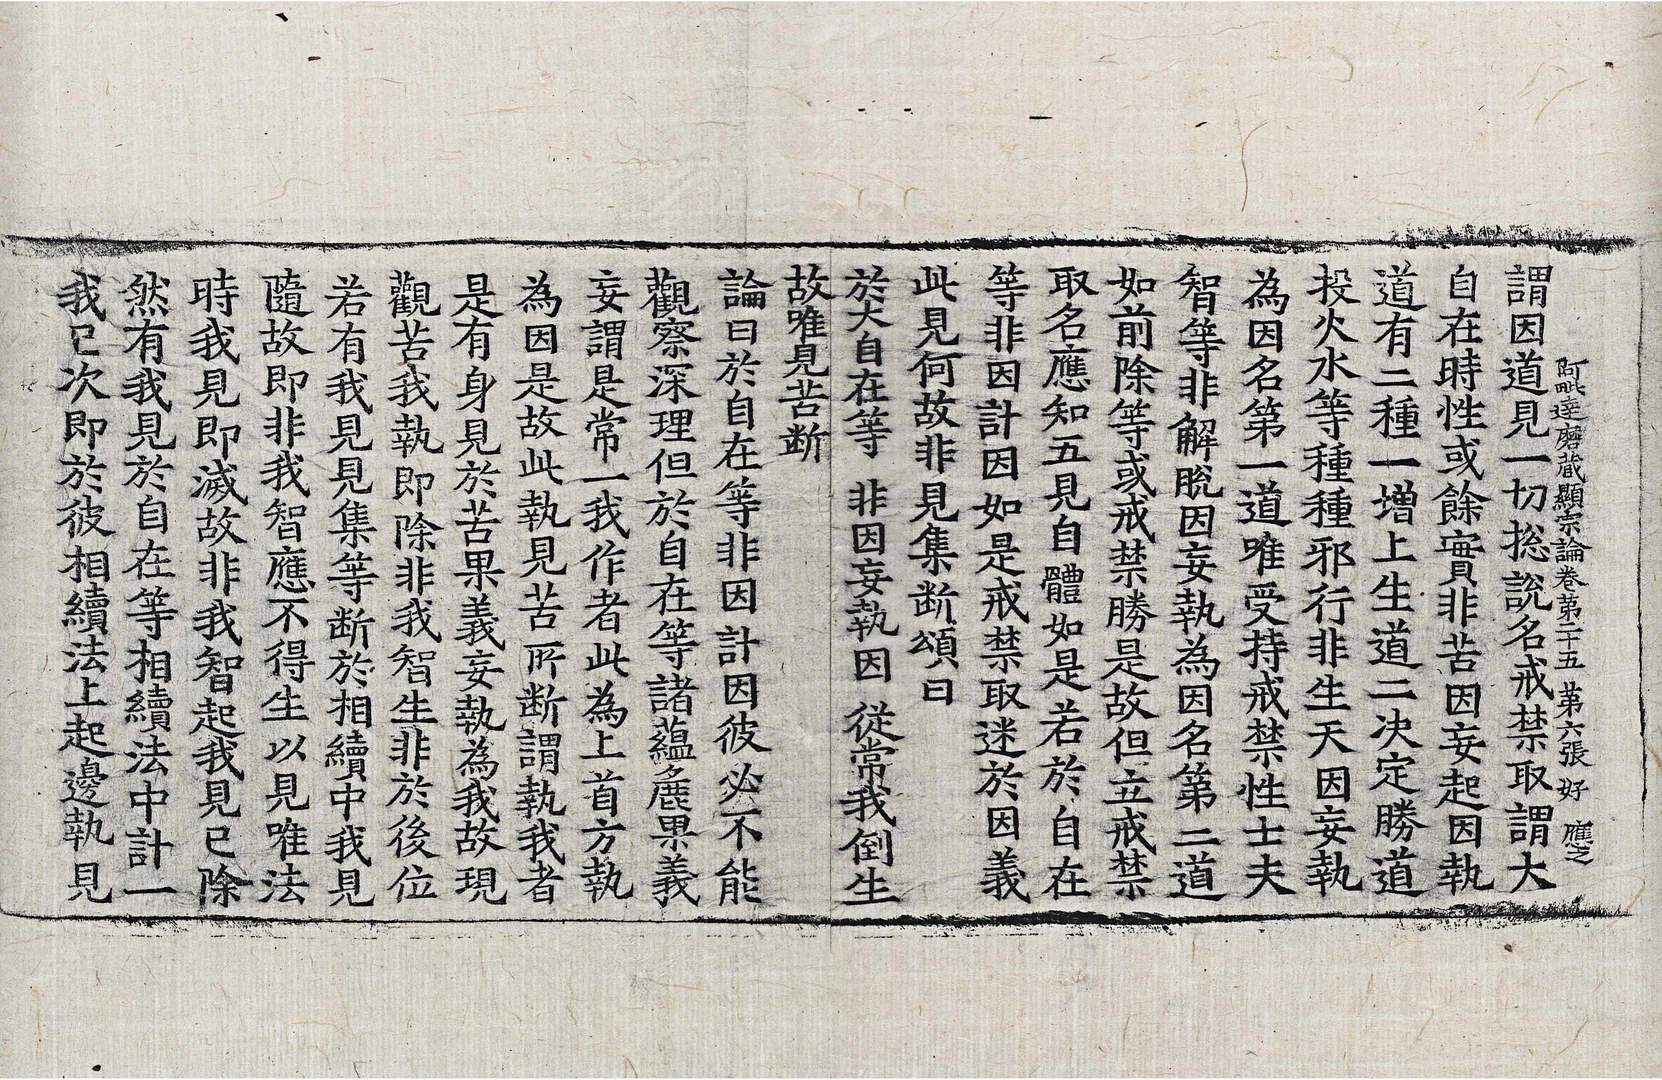 阿毗達磨藏顯宗論卷第二十五 第六張 好 應之
謂因道見一切揔說名戒禁取謂大
自在時性或餘實非苦因妄起因執
道有二種一增上生道二決定勝道
投火水等種種邪行非生天因妄執
為因名第一道唯受持戒禁性士夫
智等非解脫因妄執為因名第二道
如前除等或戒禁勝是故但立戒禁
取名應知五見自體如是若於自在
等非因計因如是戒禁取迷於因義
此見何故非見集断頌曰
於大自在等 非因妄執因 從常我倒生
故唯見苦断
論曰於自在等非因計因彼必不能
觀察深理但於自在等諸蘊麁果義
妄謂是常一我作者此為上首方執
為因是故此執見苦所断謂執我者
是有身見於苦果義妄執為我故現
觀苦我執即除非我智生非於後位
若有我見見集等断於相續中我見
隨故即非我智應不得生以見唯法
時我見即滅故非我智起我見已除
然有我見於自在等相續法中計一
我已次即於彼相續法上起邊執見